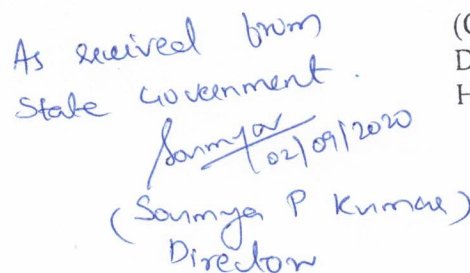 As received from
State Government.
Soumya
02/09/2020
(Soumya P Kumar)
Director
(C
D
H